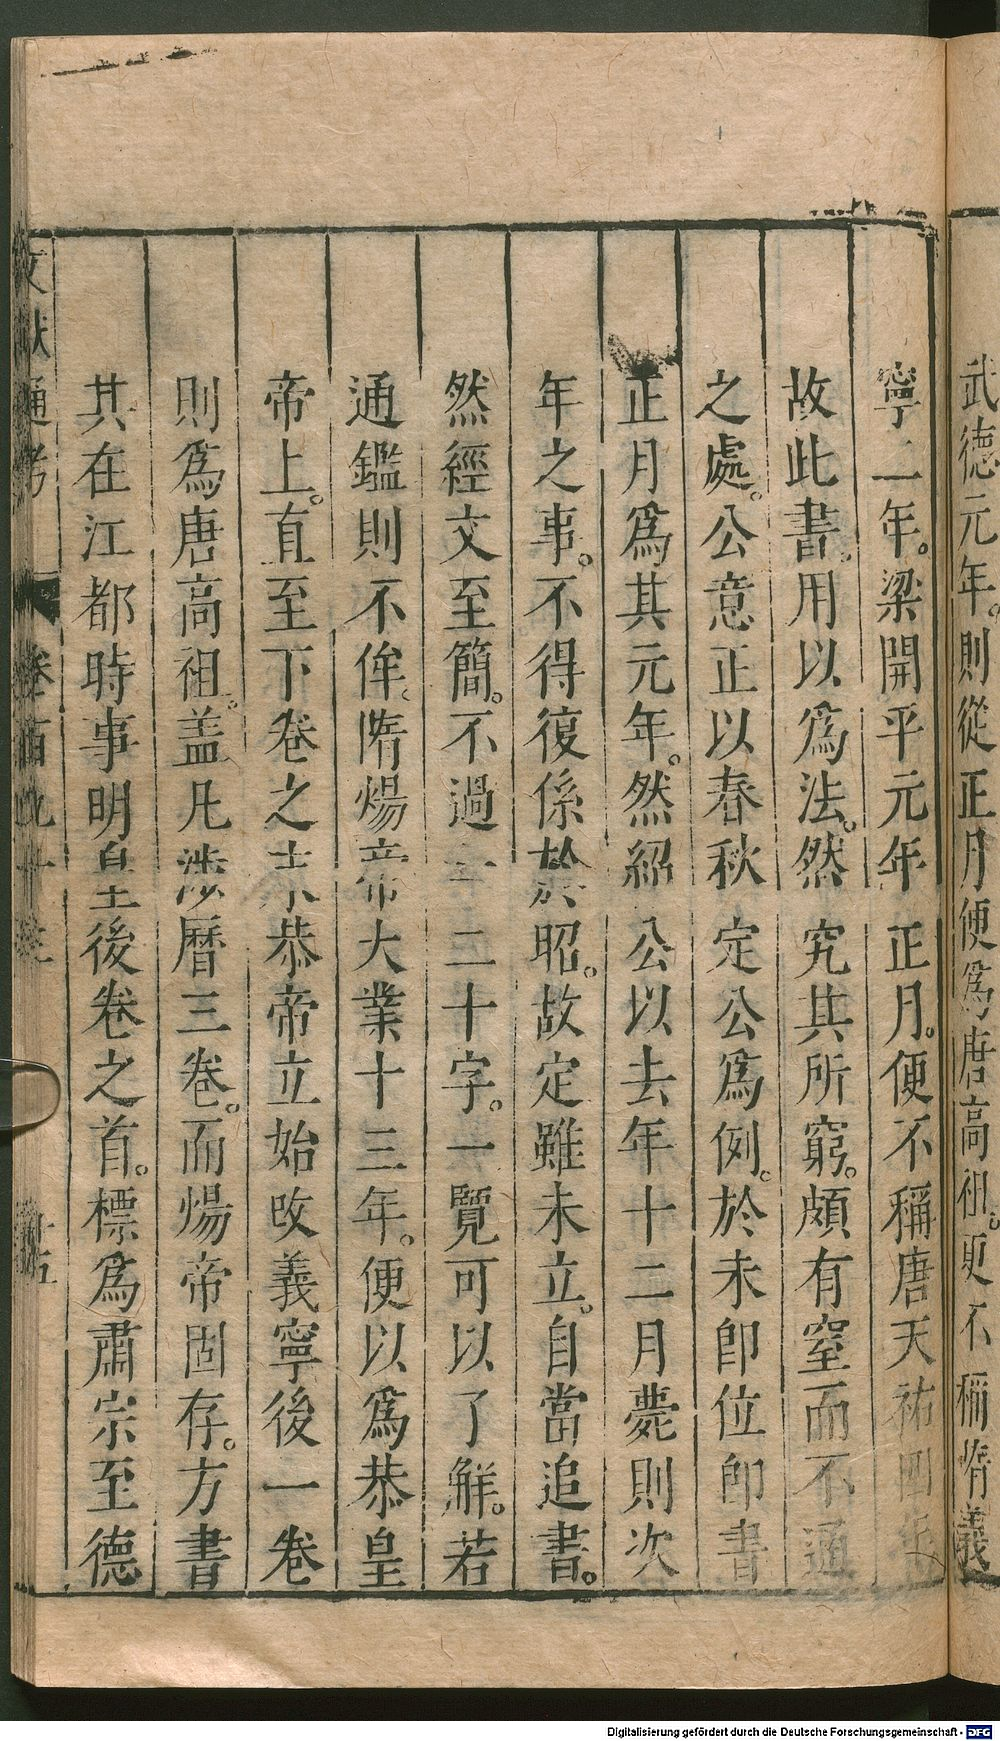 武德元年。則從正月便爲唐高祖。更不稱隋義
寧二年。梁開平元年正月。便不稱唐天祐四年
故此書。用以爲法。然究其所窮。頗有窒而不通
之處。公意正以春秋定公爲例。於未卽位卽書
正月爲其元年。然紹公以去年十二月薨則次
年之事。不得復係於昭。故定雖未立。自當追書。
然經文至簡。不過一二十字。一覽可以了解。若
通鑑則不侔。隋煬帝大業十三年。便以爲恭皇
帝上。直至下卷之末恭帝立始改義寧後一卷
則爲唐高祖。蓋凡涉曆三卷。而煬帝固存。方書
其在江都時事明皇後卷之首。標爲肅宗至德
文獻通考 卷百九十三 十五
Digitalisierung gefördert durch die Deutsche Forschungsgemeinschaft - DFG